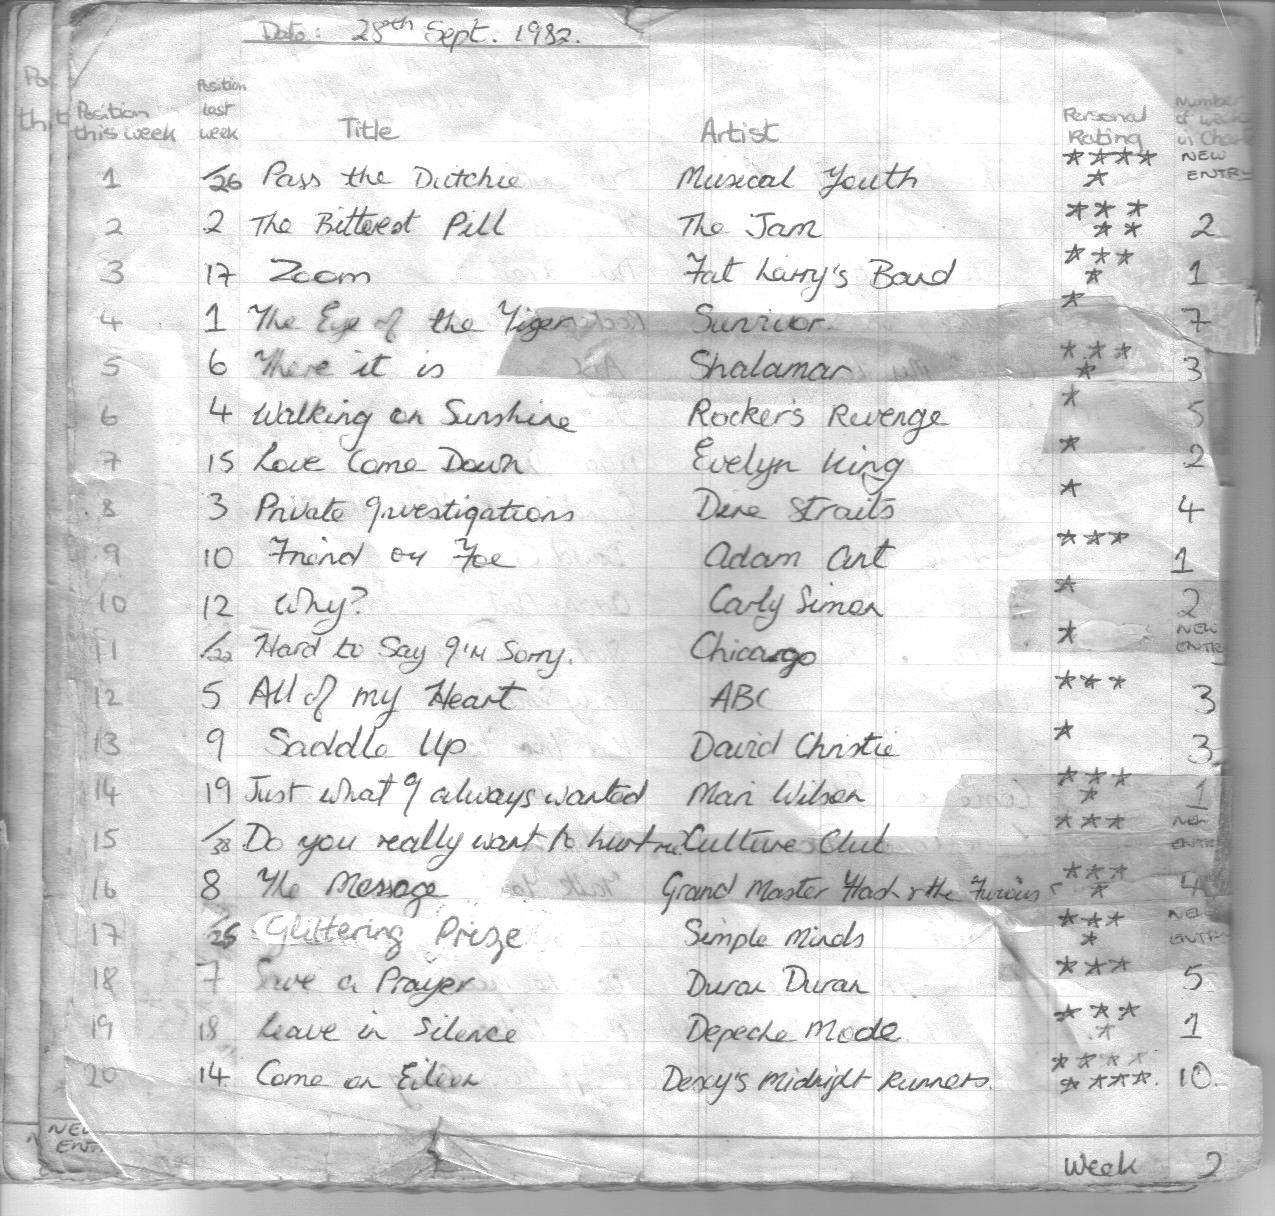 Date: 28th Sept. 1982.
Position this week Position last week Title Artist Personal Rating Number of weeks in Chart
1 /26 Pass the Dutchie Musical Youth ***** NEW ENTRY
2 2 The Bitterest Pill The Jam ***** 2
3 17 Zoom Fat Larry's Band **** 1
4 1 The Eye of the Tiger Survivor. * 7
5 6 There it is Shalamar **** 3
6 4 Walking on Sunshine Rocker's Revenge * 5
7 15 Love Come Down Evelyn King * 2
8 3 Private Investigations Dire Straits * 4
9 10 Friend or Foe Adam Ant *** 1
10 12 Why? Carly Simon * 2
11 /22 Hard to Say I'm Sorry. Chicago * NEW ENTRY
12 5 All of my Heart ABC *** 3
13 9 Saddle Up David Christie * 3
14 19 Just what I always wanted Mari Wilson **** 1
15 /38 Do you really want to hurt me Culture Club *** NEW ENTRY
16 8 The Message Grand Master Flash & the Furious 5 **** 4
17 /25 Glittering Prize Simple Minds **** NEW ENTRY
18 7 Save a Prayer Duran Duran *** 5
19 18 Leave in Silence Depeche Mode. **** 1
20 14 Come on Eileen Dexy's Midnight Runners. ******** 10.
NEW ENT
Week 2